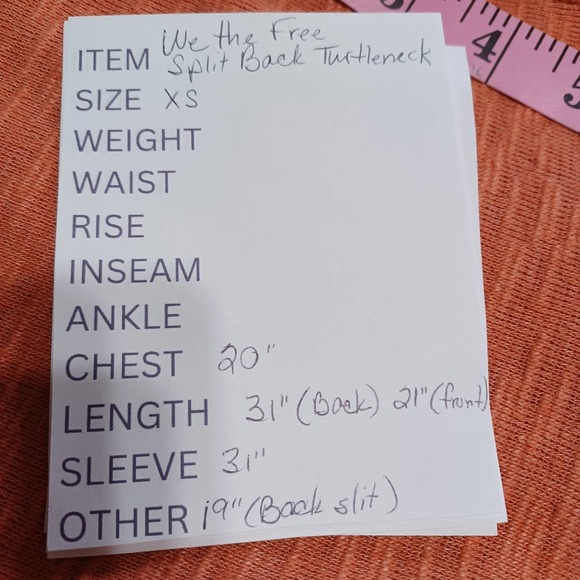 ITEM We the Free
Split Back Turtleneck
SIZE XS
WEIGHT
WAIST
RISE
INSEAM
ANKLE
CHEST 20"
LENGTH 31" (Back) 21" (front)
SLEEVE 31"
OTHER 19" (Back slit)
3 4 5